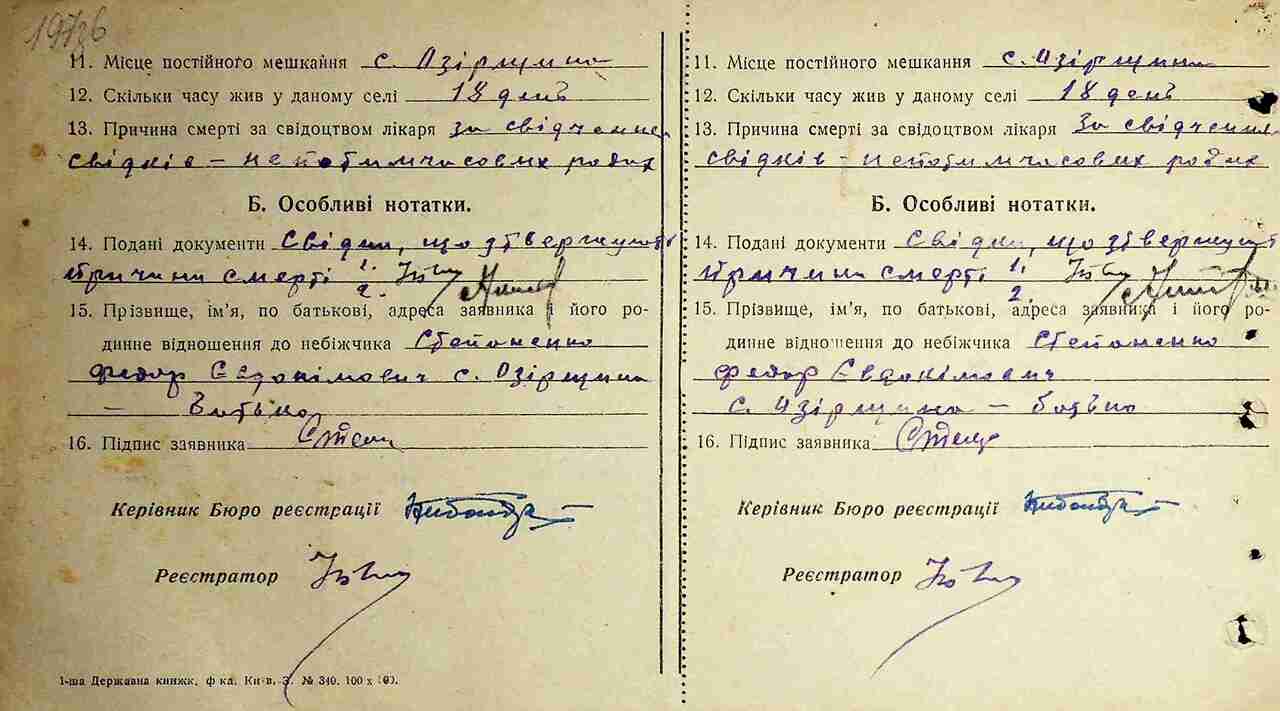 19736
11. Місце постійного мешкання с. Озірщина
12. Скільки часу жив у даному селі 18 день
13. Причина смерті за свідоцтвом лікаря За свідченне
свідків –
Б. Особливі нотатки.
14. Подані документи Свідки, що
причини смерті 1.
2.
15. Прізвище, ім'я, по батькові, адреса заявника і його ро-
динне відношення до небіжчика Степоненко
Федор Євдокімович с. Озірщина
– батько
16. Підпис заявника
Керівник Бюро реєстрації
Реєстратор
1-ша Державна книжк. ф-ка. Київ. З. № 340. 100 х 100.
11. Місце постійного мешкання с. Озірщина
12. Скільки часу жив у даному селі 18 день
13. Причина смерті за свідоцтвом лікаря За свідченне
свідків –
Б. Особливі нотатки.
14. Подані документи Свідки, що
причини смерті 1.
2.
15. Прізвище, ім'я, по батькові, адреса заявника і його ро-
динне відношення до небіжчика Степоненко
Федор Євдокімович
с. Озірщина – батько
16. Підпис заявника
Керівник Бюро реєстрації
Реєстратор